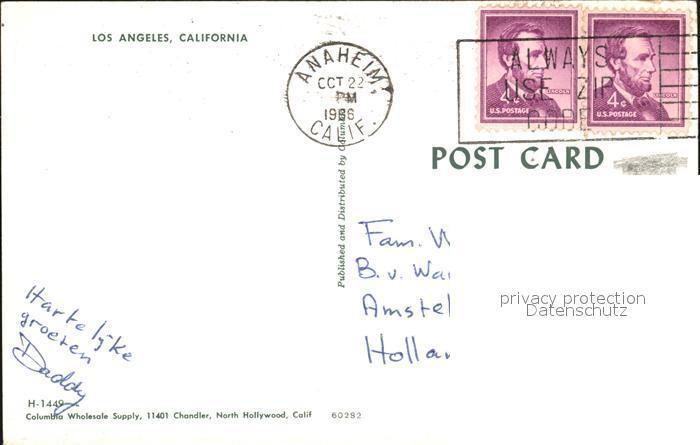 LOS ANGELES, CALIFORNIA
ANAHEIM,
OCT 22
PM
1966
CALIF.
ALWAYS
USE ZIP
CODE
LINCOLN
4¢
U.S. POSTAGE
LINCOLN
4¢
U.S. POSTAGE
POST CARD
Published and Distributed by Columb
Fam.
B. v.
Amstel
Holla
privacy protection
Datenschutz
Hartelijke
groeten
Daddy
H-1449
Columbia Wholesale Supply, 11401 Chandler, North Hollywood, Calif 60282